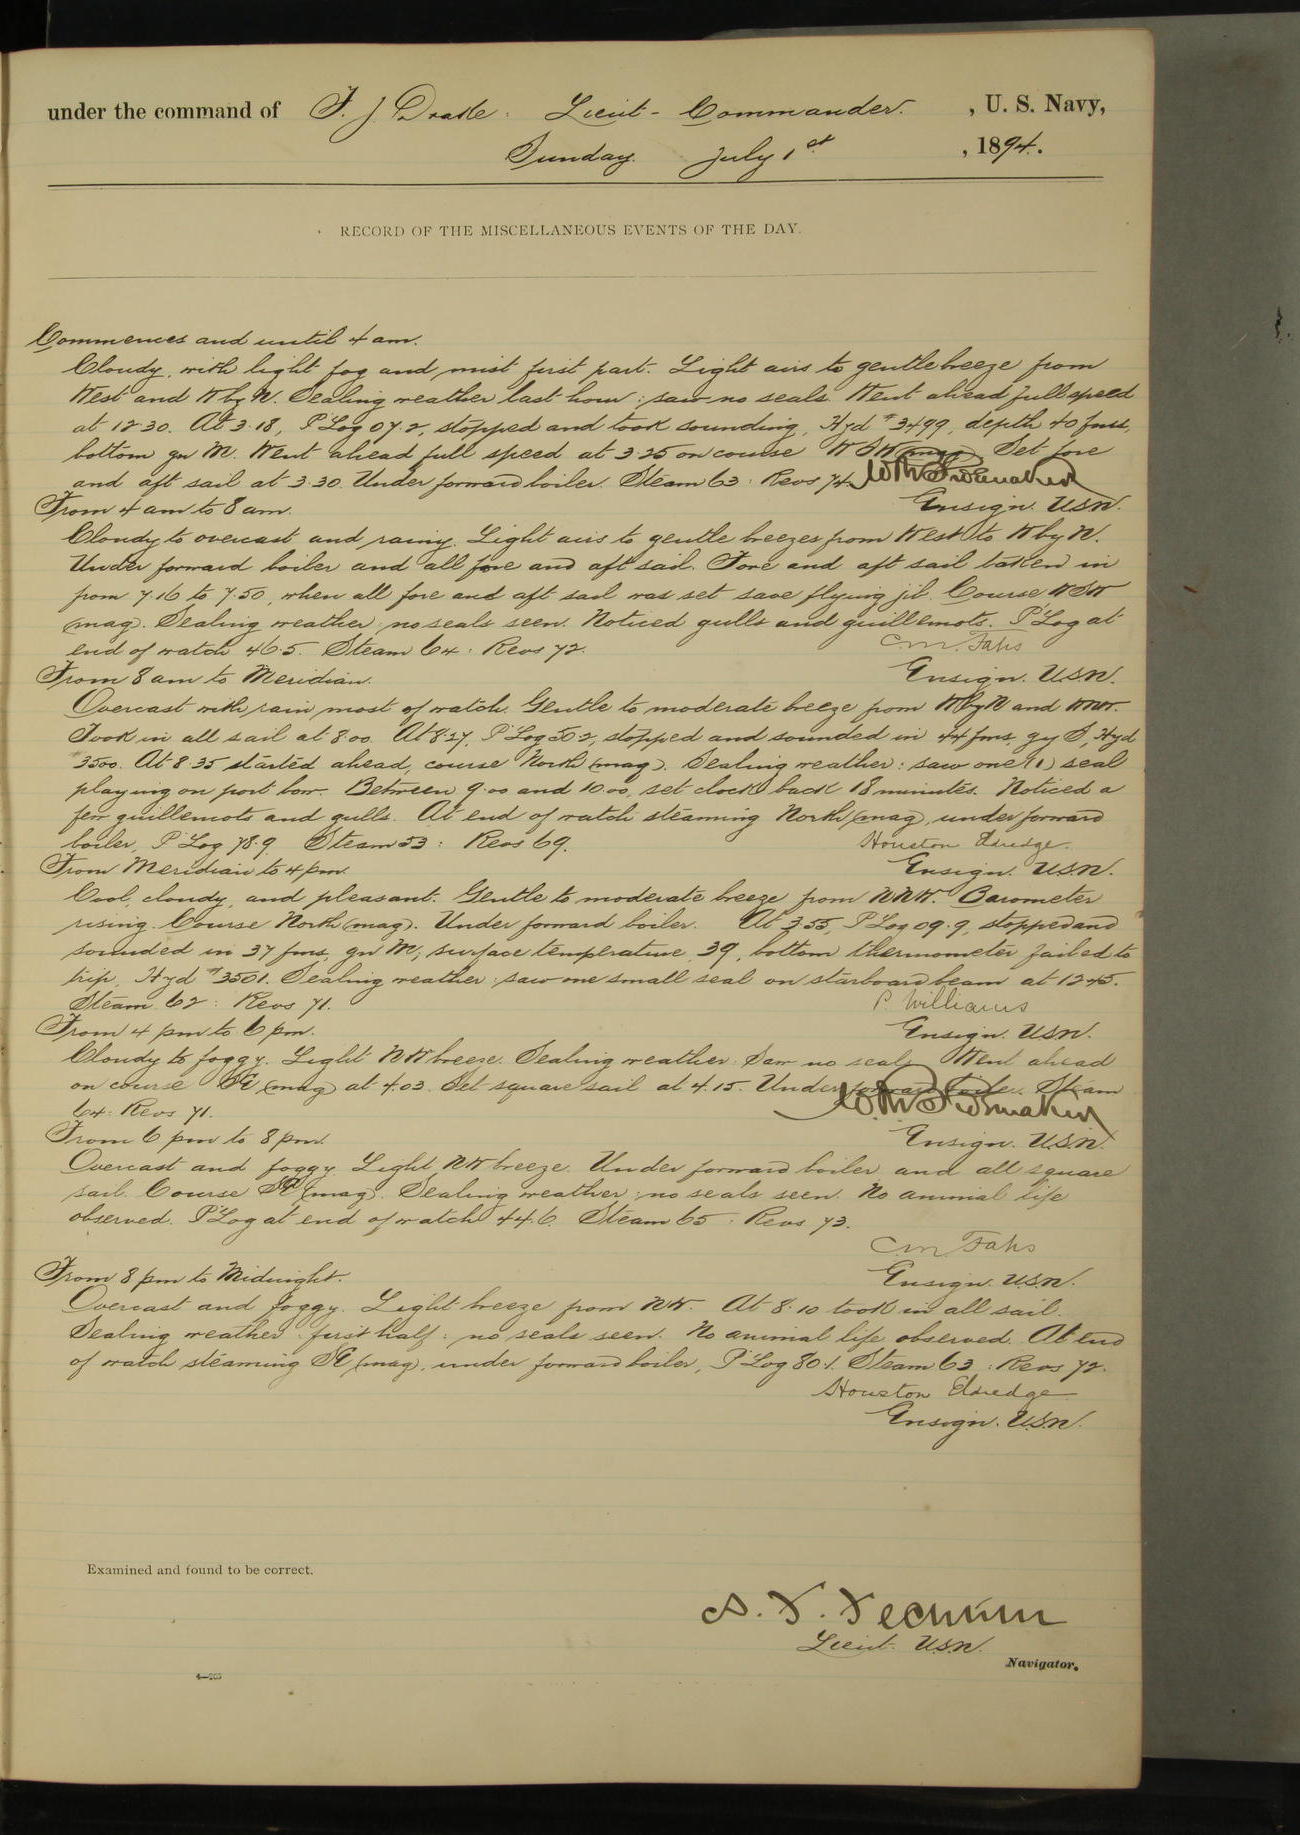 under the command of F. J. Drake, Lieut-Commander. , U. S. Navy,
Sunday. July 1st , 1894.
RECORD OF THE MISCELLANEOUS EVENTS OF THE DAY.
Commences and until 4 am.
Cloudy, with light fog and mist first part. Light airs to gentle breeze from
West and W by N. Sealing weather last hour: saw no seals. Went ahead full speed
at 12.30. At 3.18, P Log 07.2, stopped and took sounding, Hyd # 3499, depth 40 fms,
bottom gn M. Went ahead full speed at 3.25 on course WSW (mag). Set fore
and aft sail at 3.30. Under forward boiler. Steam 63: Revs 74.
Ensign. U.S.N.
From 4 am to 8 am.
Cloudy to overcast and rainy. Light airs to gentle breezes from West to W by N.
Under forward boiler and all fore and aft sail. Fore and aft sail taken in
from 7.16 to 7.50, when all fore and aft sail was set save flying jib. Course WSW
(mag). Sealing weather: no seals seen. Noticed gulls and guillemots. P Log at
end of watch 46.5. Steam 64: Revs 72.
C.M. Fahs
Ensign. U.S.N.
From 8 am to Meridian.
Overcast with rain most of watch. Gentle to moderate breeze from W by N and WNW.
Took in all sail at 8.00. At 8.27, P Log 50.2, stopped and sounded in 44 fms, gy S, Hyd
# 3500. At 8.35 started ahead, course North (mag). Sealing weather: saw one (1) seal
playing on port bow. Between 9.00 and 10.00, set clock back 18 minutes. Noticed a
few guillemots and gulls. At end of watch steaming North (mag), under forward
boiler, P Log 78.9 Steam 53: Revs 69.
Houston Eldredge.
Ensign. U.S.N.
From Meridian to 4 pm.
Cool, cloudy, and pleasant. Gentle to moderate breeze from NNW. Barometer
rising. Course North (mag). Under forward boiler. At 3.55, P Log 09.9, stopped and
sounded in 37 fms, gn M; surface temperature, 39, bottom thermometer failed to
trip, Hyd # 3501. Sealing weather: saw one small seal on starboard beam at 12.45.
Steam 62: Revs 71.
P. Williams
Ensign. U.S.N.
From 4 pm to 6 pm.
Cloudy to foggy. Light NW breeze. Sealing weather: Saw no seals. Went ahead
on course SE (mag) at 4.03. Set square sail at 4.15. Under forward boiler. Steam
64: Revs 71.
Ensign. U.S.N.
From 6 pm to 8 pm.
Overcast and foggy. Light NW breeze. Under forward boiler and all square
sail. Course SE (mag). Sealing weather: no seals seen. No animal life
observed. P Log at end of watch 44.6. Steam 65: Revs 73.
C.M. Fahs
Ensign. U.S.N.
From 8 pm to Midnight.
Overcast and foggy. Light breeze from NW. At 8.10 took in all sail.
Sealing weather first half: no seals seen. No animal life observed. At end
of watch steaming SE (mag), under forward boiler, P Log 80.1. Steam 63: Revs 72.
Houston Eldredge
Ensign. U.S.N.
Examined and found to be correct.
Lieut. U.S.N.
Navigator.